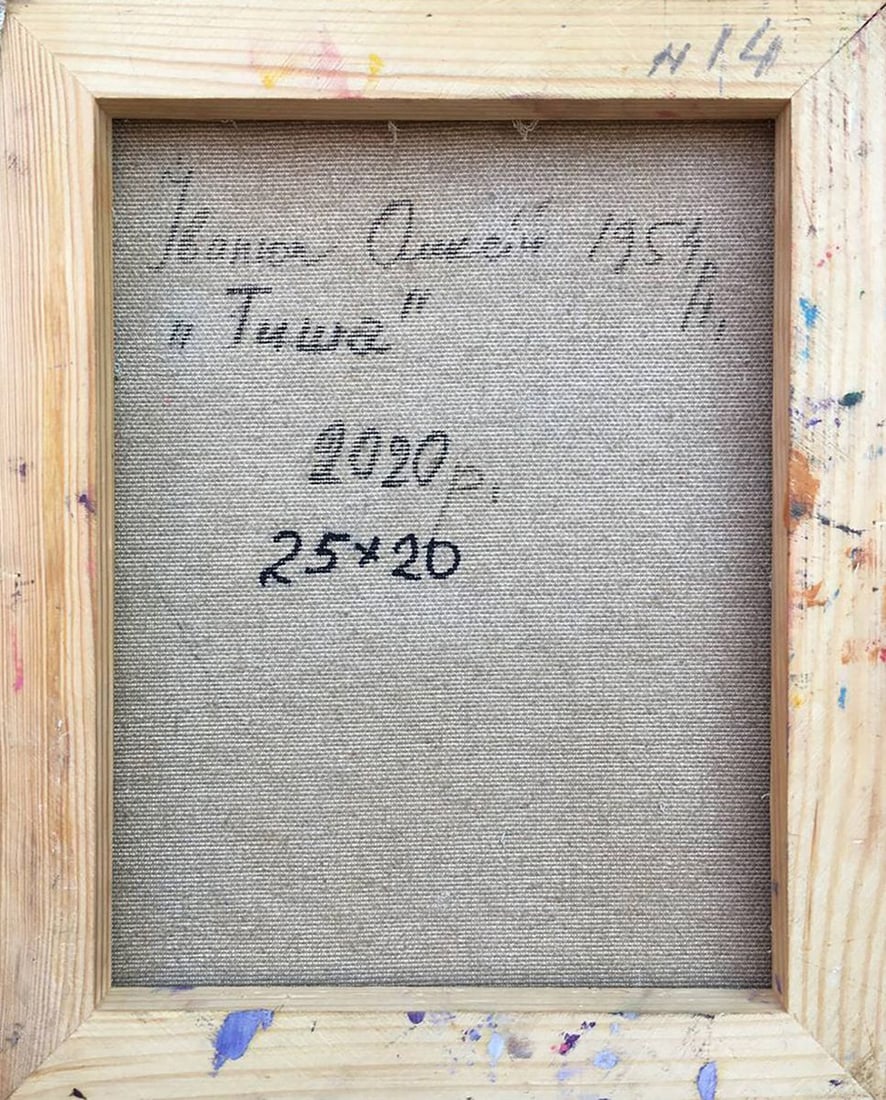 N 14
Іванюк Олексій 1954 р
н.
„Тиша"
2020 р.
25×20